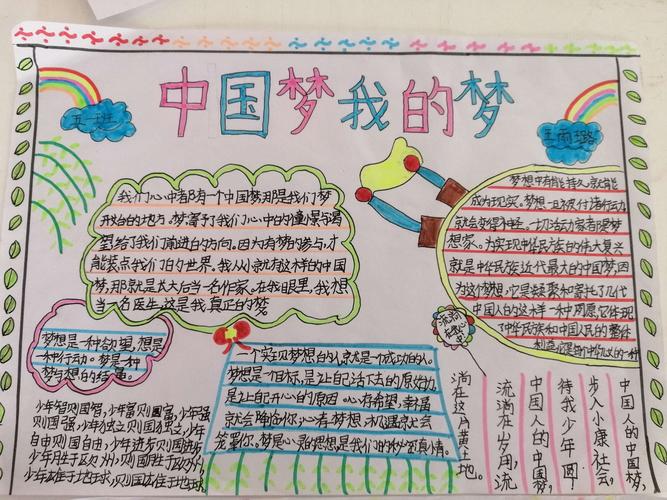 中国梦我的梦
五一班
王雨璐
我们心中都有一个中国梦那是我们梦
开始的地方.梦寄予了我们心中的憧憬与渴
望给了我们前进的方向。因为有梦的参与,才
能装点我们的世界。我从小就有这样的中国
梦,那就是长大后当一名作家。在我眼里,我想
当一名医生这是我真正的梦
梦想中有能持久,就能
成为现实。梦想一旦被付诸行动,
就会变得神圣。一切活动家都是梦
想家。为实现中华民族的伟大复兴
就是中华民族近代最大的中国梦,因
为这个梦想,它是凝聚和寄托了几代
中国人的这一种夙愿它体现
了中华民族和中国人民的整体
利益
梦想是一种欲望,想是
一种行动。梦是一种
梦与想的结晶。
一个实现梦想的人,就是一个成功的人。
梦想是一个目标,是让自己活下去的原始力,
是让自己开心的原因。心有希望,幸福
就会降临你,心有梦想,机遇就会
笼罩你,梦是心的思想是我们的秘密真情。
少年智则国智,少年富则国富,少年强
则国强,少年独立则国独立,少年
自由则国自由,少年进步则国进步,
少年胜于欧州,则国胜于欧州,
少年雄于地球,则国雄于地球
中国人的中国梦,
步入小康社会,
待我少年回
中国人的中国梦,
流淌在岁月,流
淌在这片黄土地。